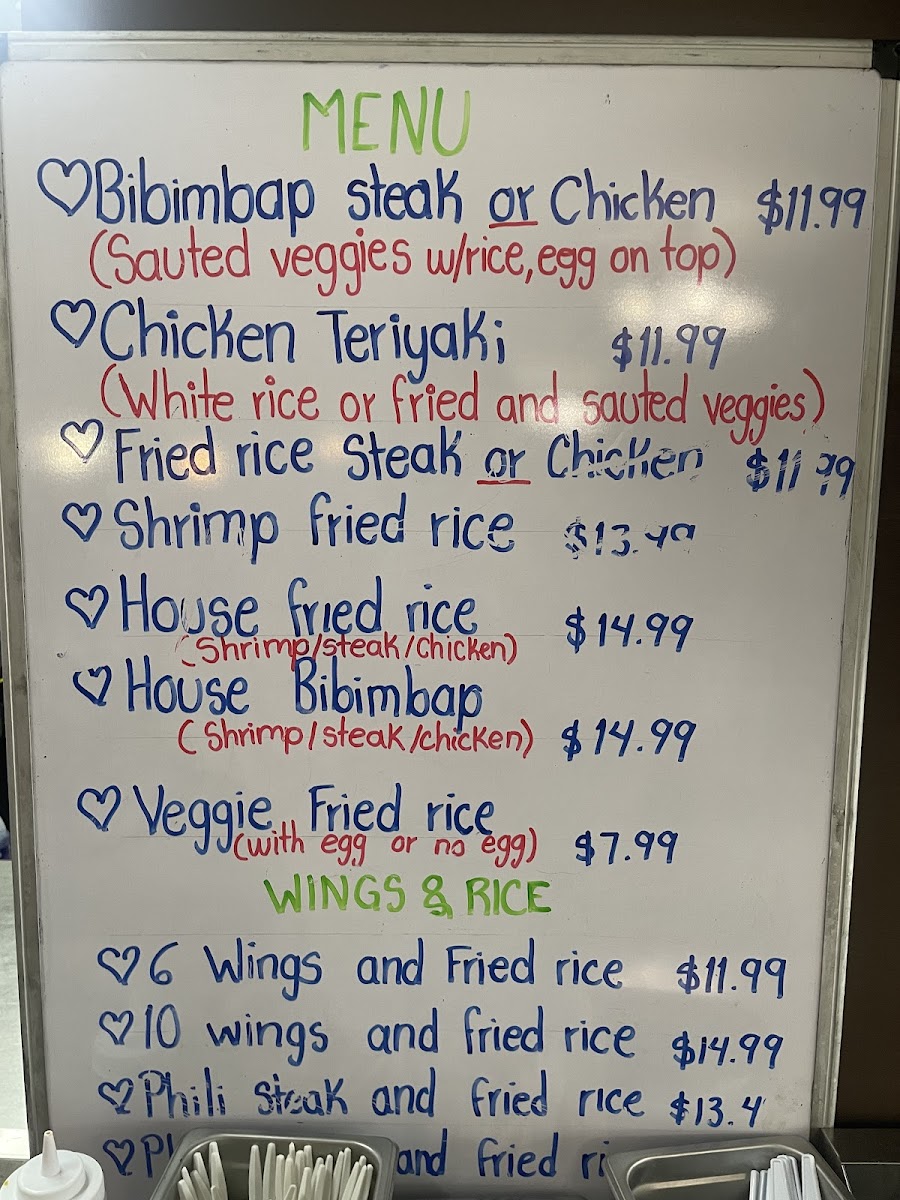 MENU
♡Bibimbap steak or Chicken $11.99
(Sauted veggies w/rice, egg on top)
♡Chicken Teriyaki $11.99
(White rice or fried and sauted veggies)
♡Fried rice Steak or Chicken $11.99
♡Shrimp fried rice
♡House fried rice $14.99
(Shrimp/steak/chicken)
♡House Bibimbap
(Shrimp/steak/chicken) $14.99
♡Veggie Fried rice
(with egg or no egg) $7.99
WINGS & RICE
♡6 Wings and Fried rice $11.99
♡10 wings and fried rice $14.99
♡Phili steak and fried rice $13.4
♡ and fried